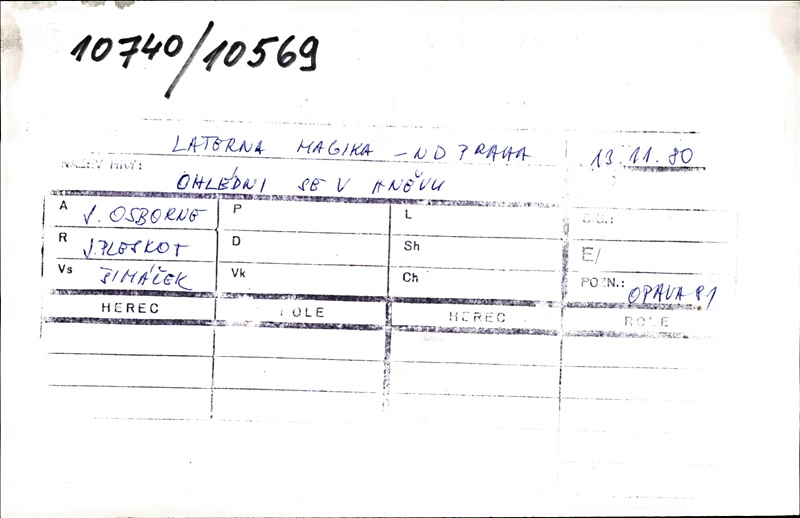 10740/10569
LATERNA MAGIKA – ND PRAHA 13.11.80
NÁZEV HRY:
OHLÉDNI SE V HNĚVU
A J. OSBORNE P L Č.J.:
R J. PLESKOT D Sh E/
Vs ŠIMÁČEK Vk Ch POZN.: OPAVA 81
HEREC ROLE HEREC ROLE